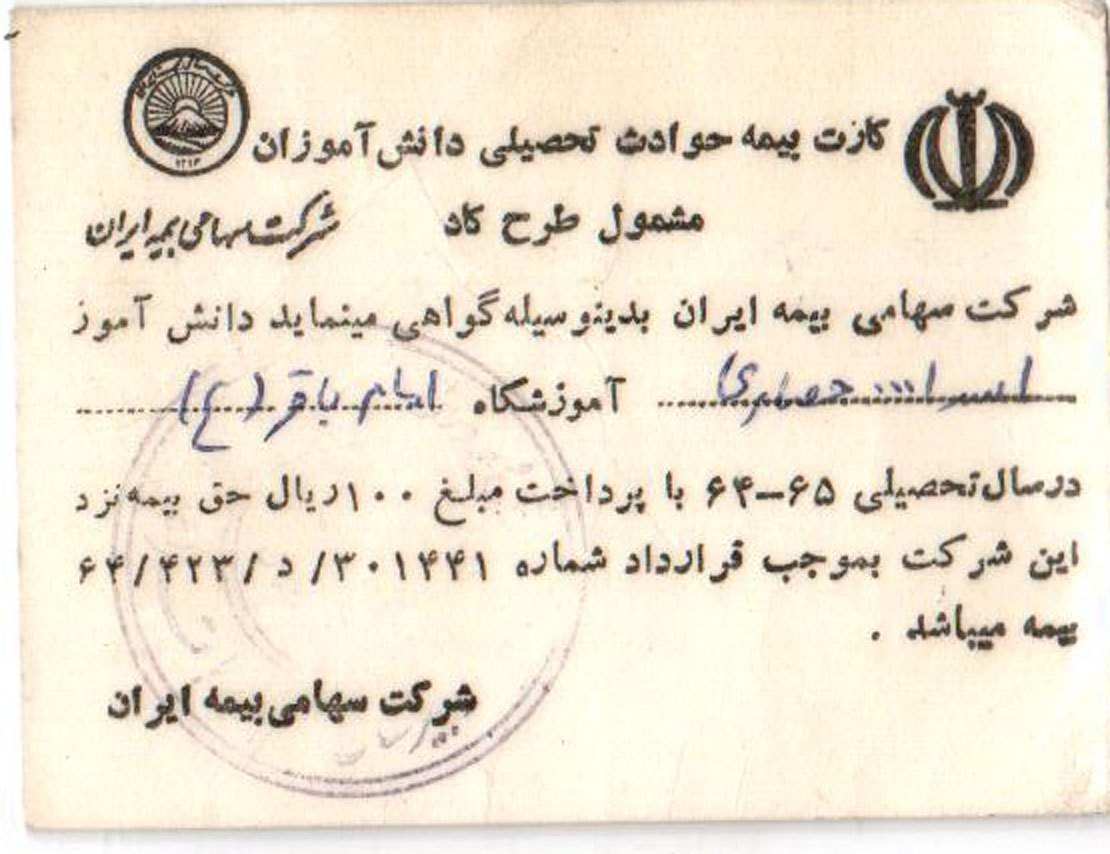 کارت بیمه حوادث تحصیلی دانش آموزان
مشمول طرح کاد
شرکت سهامی بیمه ایران
۱۳۱۴
شرکت سهامی بیمه ایران بدینوسیله گواهی مینماید دانش آموز
آموزشگاه امام باقر (ع)
در سال تحصیلی ۶۵-۶۴ با پرداخت مبلغ ۱۰۰ ریال حق بیمه نزد
این شرکت بموجب قرارداد شماره ۳۰۱۴۴۱/د/۶۴/۴۲۳
بیمه میباشد .
شرکت سهامی بیمه ایران